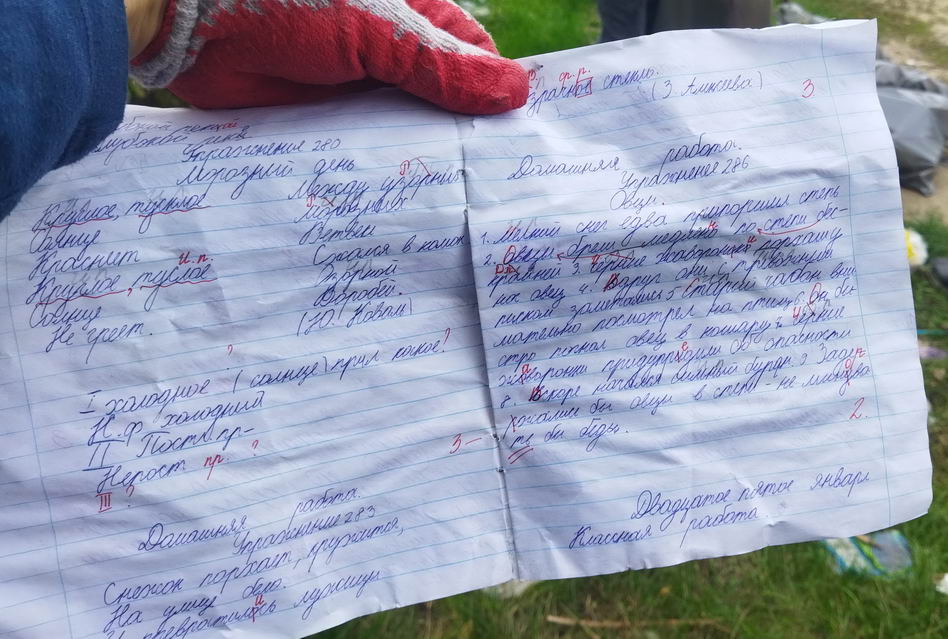 Упражнение 280
Морозный день
Круглое, тусклое
Солнце
Краснеет
и.п.
Круглое, тусклое
Солнце
Не греет.
Между узорных
Морозных
Ветвей
Сжался в комок
Зоркой
Воробей.
(Ю. Коваль)
?
I холодное (солнце) прил какое?
Н.ф. холодный
II Пост. пр-
Непост пр. ?
III ?
3-
Домашняя работа.
Упражнение 283
Снежок порхает, кружится,
На улице бело.
И превратились лужицы
ф. р.
стекло.
(З. Алексеева)
3
Домашняя работа.
Упражнение 286
Овцы.
1. Мелкий снег едва припорошил степь
2. Овцы брели медленно по степи бес-
крайней 3. Чёрные жаворонки
нок овец 4. Вдруг они с тревожным
писком заметались 5 Старый чабан вни
мательно посмотрел на птиц 6. Он бы
стро погнал овец в кошару 7. Чёрные
жаворонки предупредили об опасности
8. Вскоре начался сильный буран. 9 Заде
ржались бы овцы в степи - не миновать
бы беды.
2.
Двадцатое пятое января
Классная работа.